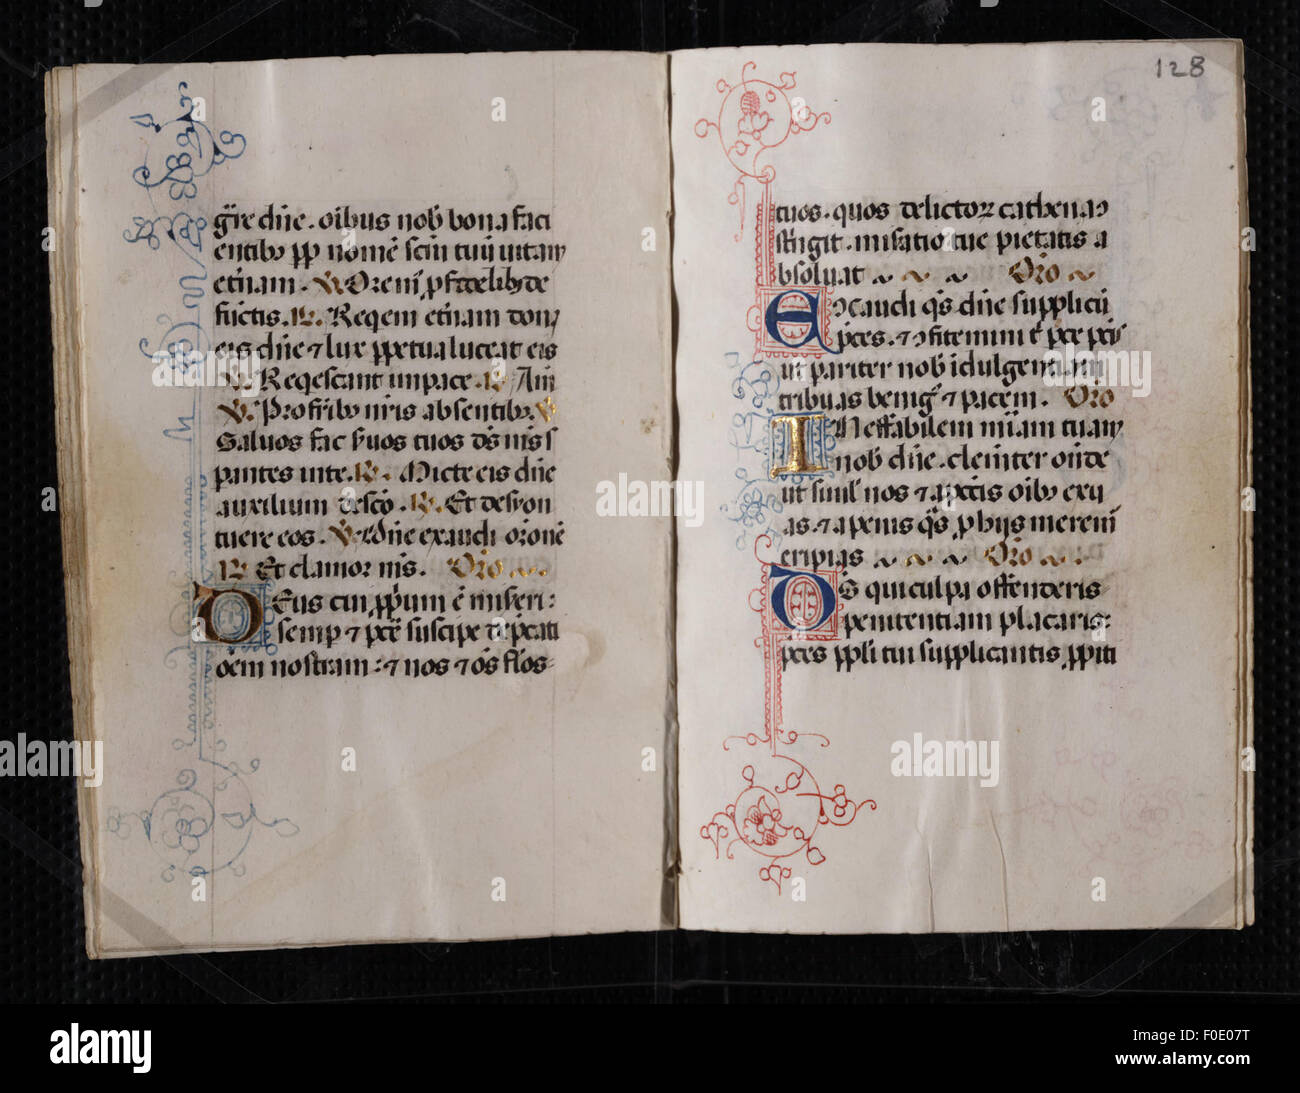 gr̃e dñe. oĩbus nob̃ bona faci
entib᷒ ꝓp nomẽ sc̃m tuũ uitam
et̃nam. ℣. Orem᷒ ꝓ fidelib᷒ de
fũctis. ℟. Reqem et̃nam dona
eis dñe ⁊ lux ꝑpetua luceat eis
℣. Reqescant in pace. ℟. Am̃
℣. Pro fr̃ib᷒ nr̃is absentib᷒. ℣
Saluos fac s̃uos tuos ds̃ ms̃ s
pantes in te. ℟. Micte eis dñe
auxilium de sc̃o. ℟. Et de syon
tuere eos. ℣. Dñe exaudi or̃onẽ
℟ Et clamor ms̃. Oro
DEus cui ꝓp̃ium ẽ miseri:
semp ⁊ pc̃e suscipe dep̃cati
oẽm nostram: ⁊ nos ⁊ oẽs fl̃os
128
tuos. quos delictoꝝ cathena
st̃ngit. mis̃atio tue pietatis a
bsoluat Oro
EXaudi qs̃ dñe supplicũ
p̃ces. ⁊ ꝯfitentiũ t᷒ pce pctĩs
ut pariter nob̃ idulgentiam
tribuas benig᷒ ⁊ pacem. Oro
INeffabilem miãm tuam
nob̃ dñe. clemẽter oñde
ut simul̃ nos ⁊ a pctĩs oĩb᷒ exu
as. ⁊ a penis qs̃ ꝓ hijs merem᷒
eripias Oro
DS̃ qui culpa offenderis
penitentiam placaris:
p̃ces ppl̃i tui supplicantis ꝓpiti
alamy
alamy
Image ID: F0E07T
www.alamy.com